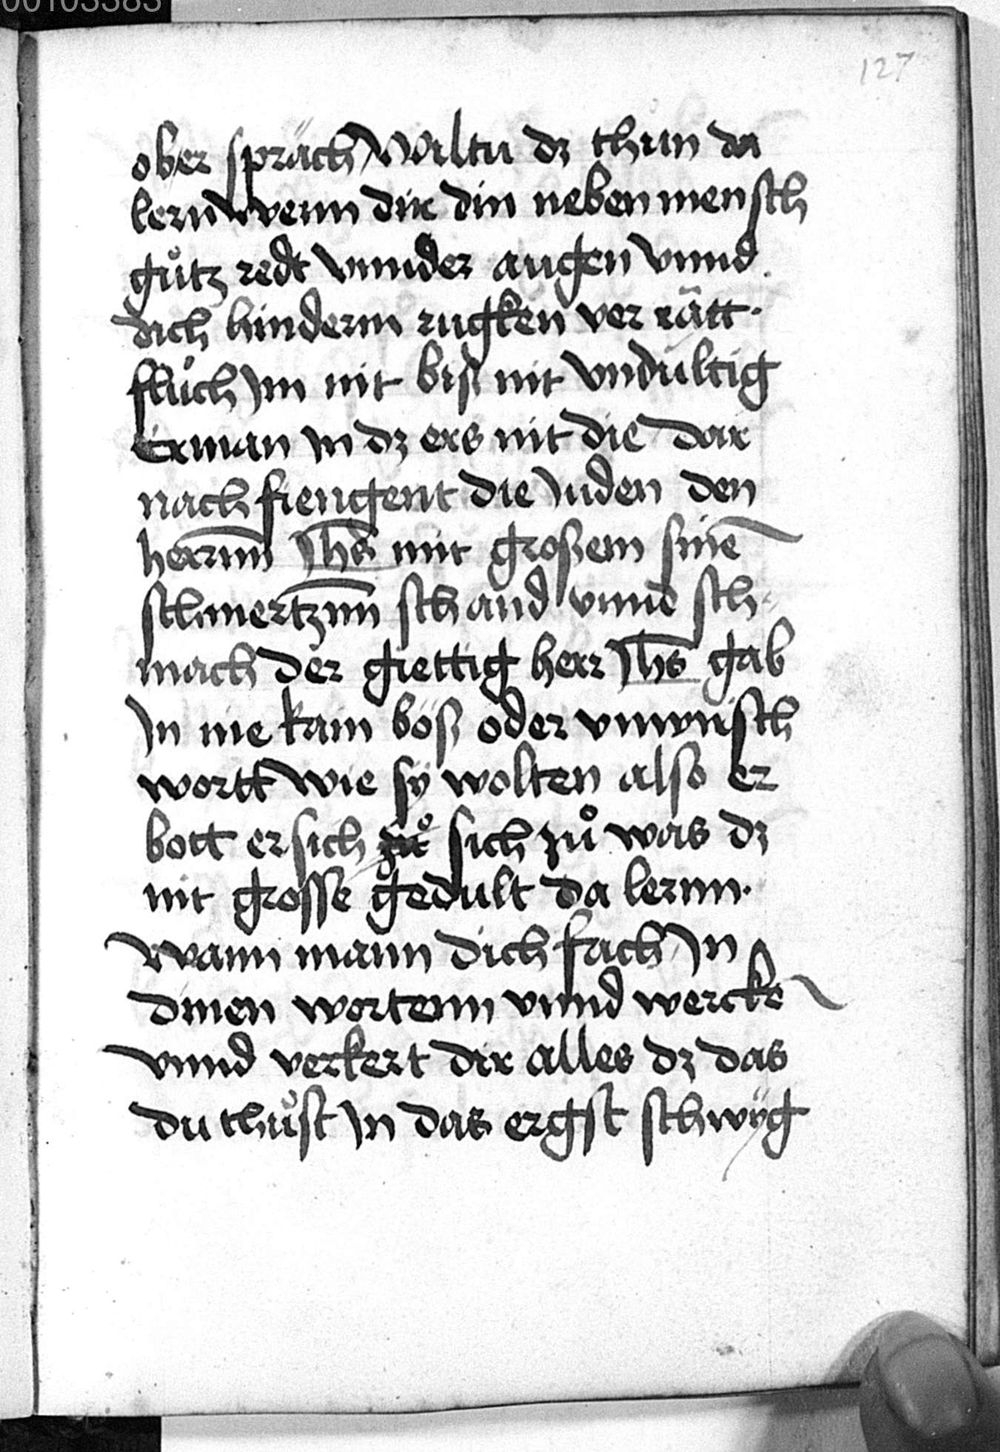 00103383
127
ober spräch Wiltu dz thun da
lern wenn dir din neben mensch
gůtz redt vnnder augen vnnd
dich hinderm rugken ver rätt·
flůch Jm nit biß nit vndultig
Erman jn dz ers nit die dar
nach fiengent die Juden den
herrnn Jhs mit großem sinē
schmertznn schand vnnd sch-
mach der giettig herr Jhs gab
Jn nie kain böß oder vnwirsch
wortt wie sÿ wolten also er
bott er sich zů sich zů was dz
nit grosse gedult da lernn·
Wann mann dich fach Jn
dinen wortenn vnnd wercke
vnnd verkert dir alles dz das
du thůst Jn das ergst schwÿg